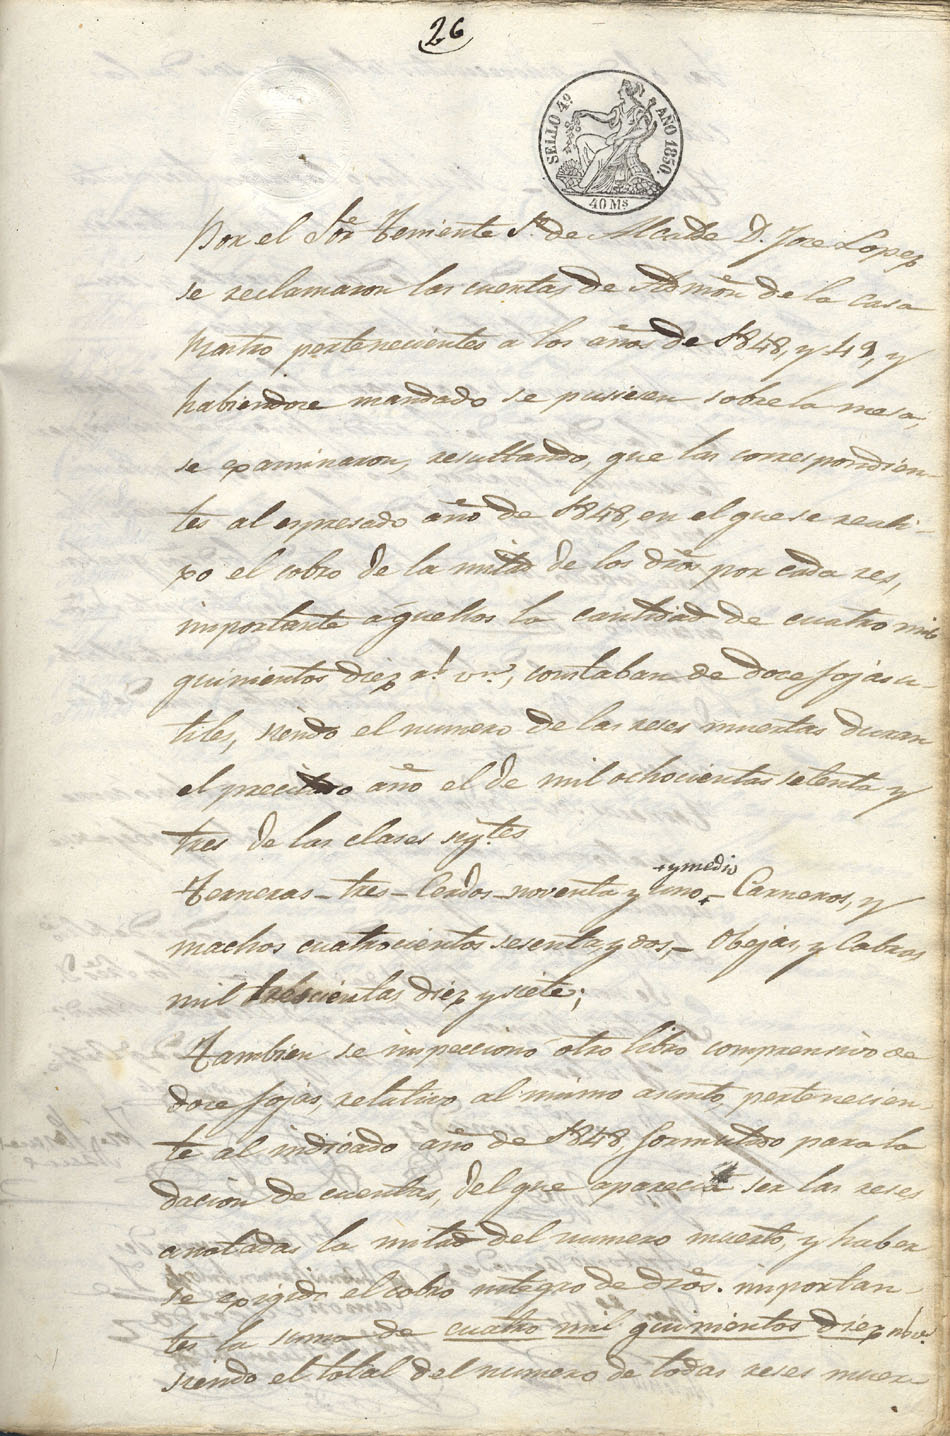 26
SELLO 4º AÑO 1850.
40 Ms
Por el Sõr Teniente 1º de Alcalde D. Jose Lopez
se reclamaron las cuentas de Admõn de la casa
Mastro pertenecientes a los años de 1848, y 49, y
habiendose mandado se pusiesen sobre la mesa,
se examinaron, resultando, que las correspondien-
tes al espresado año de 1848, en el que se reali-
zo el cobro de la mitad de los dr̃os por cada res,
importante aquellos la cantidad de cuatro mil
quinientos diez rˢ vⁿ, constaban de doce fojas u-
tiles, siendo el numero de las reses muertas duran
el precitado año el de mil ochocientas setenta y
tres de las clases sigᵗᵉˢ
Terneras - tres - Cerdos - noventa y uno + y medio + - Carneros, y
machos cuatrocientos sesenta y dos, - Obejas, y Cabras
mil trescientas diez y siete;
Tambien se inspeccionó otro libro comprensivo de
doce fojas, relativo al mismo asunto, pertenecien-
te al indicado año de 1848 formulado para la
dacion de cuentas, del que aparecia ser las reses
anotadas la mitad del numero muerto, y haber
se exigido el cobro integro de dr̃os. importan-
tes la suma de cuatro mil quinientos diez rˢ vⁿ
siendo el total del numero de todas reses muer